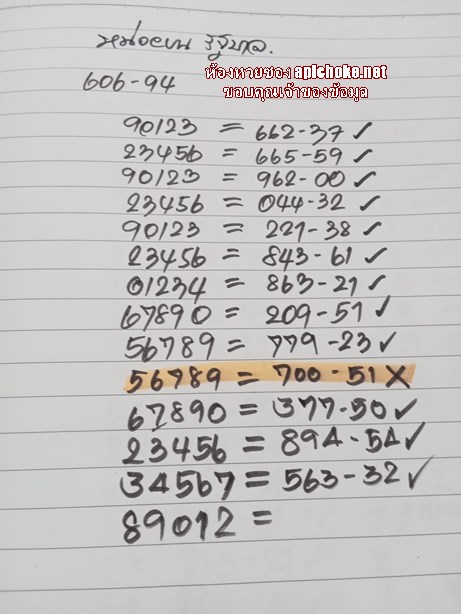 หน่วยบน รัฐบาล.
ห้องหวยของ apichoke.net
ขอบคุณเจ้าของข้อมูล
606-94
90123 = 662-37 ✓
23456 = 665-59 ✓
90123 = 962-00 ✓
23456 = 044-32 ✓
90123 = 221-38 ✓
23456 = 843-61 ✓
01234 = 863-21 ✓
67890 = 209-51 ✓
56789 = 779-23 ✓
56789 = 700-51 X
67890 = 377-50 ✓
23456 = 894-54 ✓
34567 = 563-32 ✓
89012 =